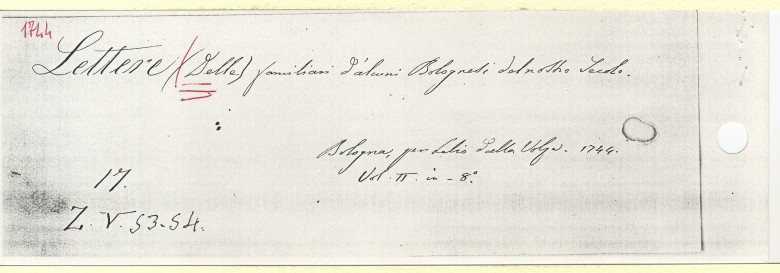 1744
Lettere (Delle) familiari d'alcuni Bolognesi del nostro Secolo.
Bologna, per Lelio dalla Volpe. 1744.
Vol. II. in-8°.
17.
Z. V. 53-54.